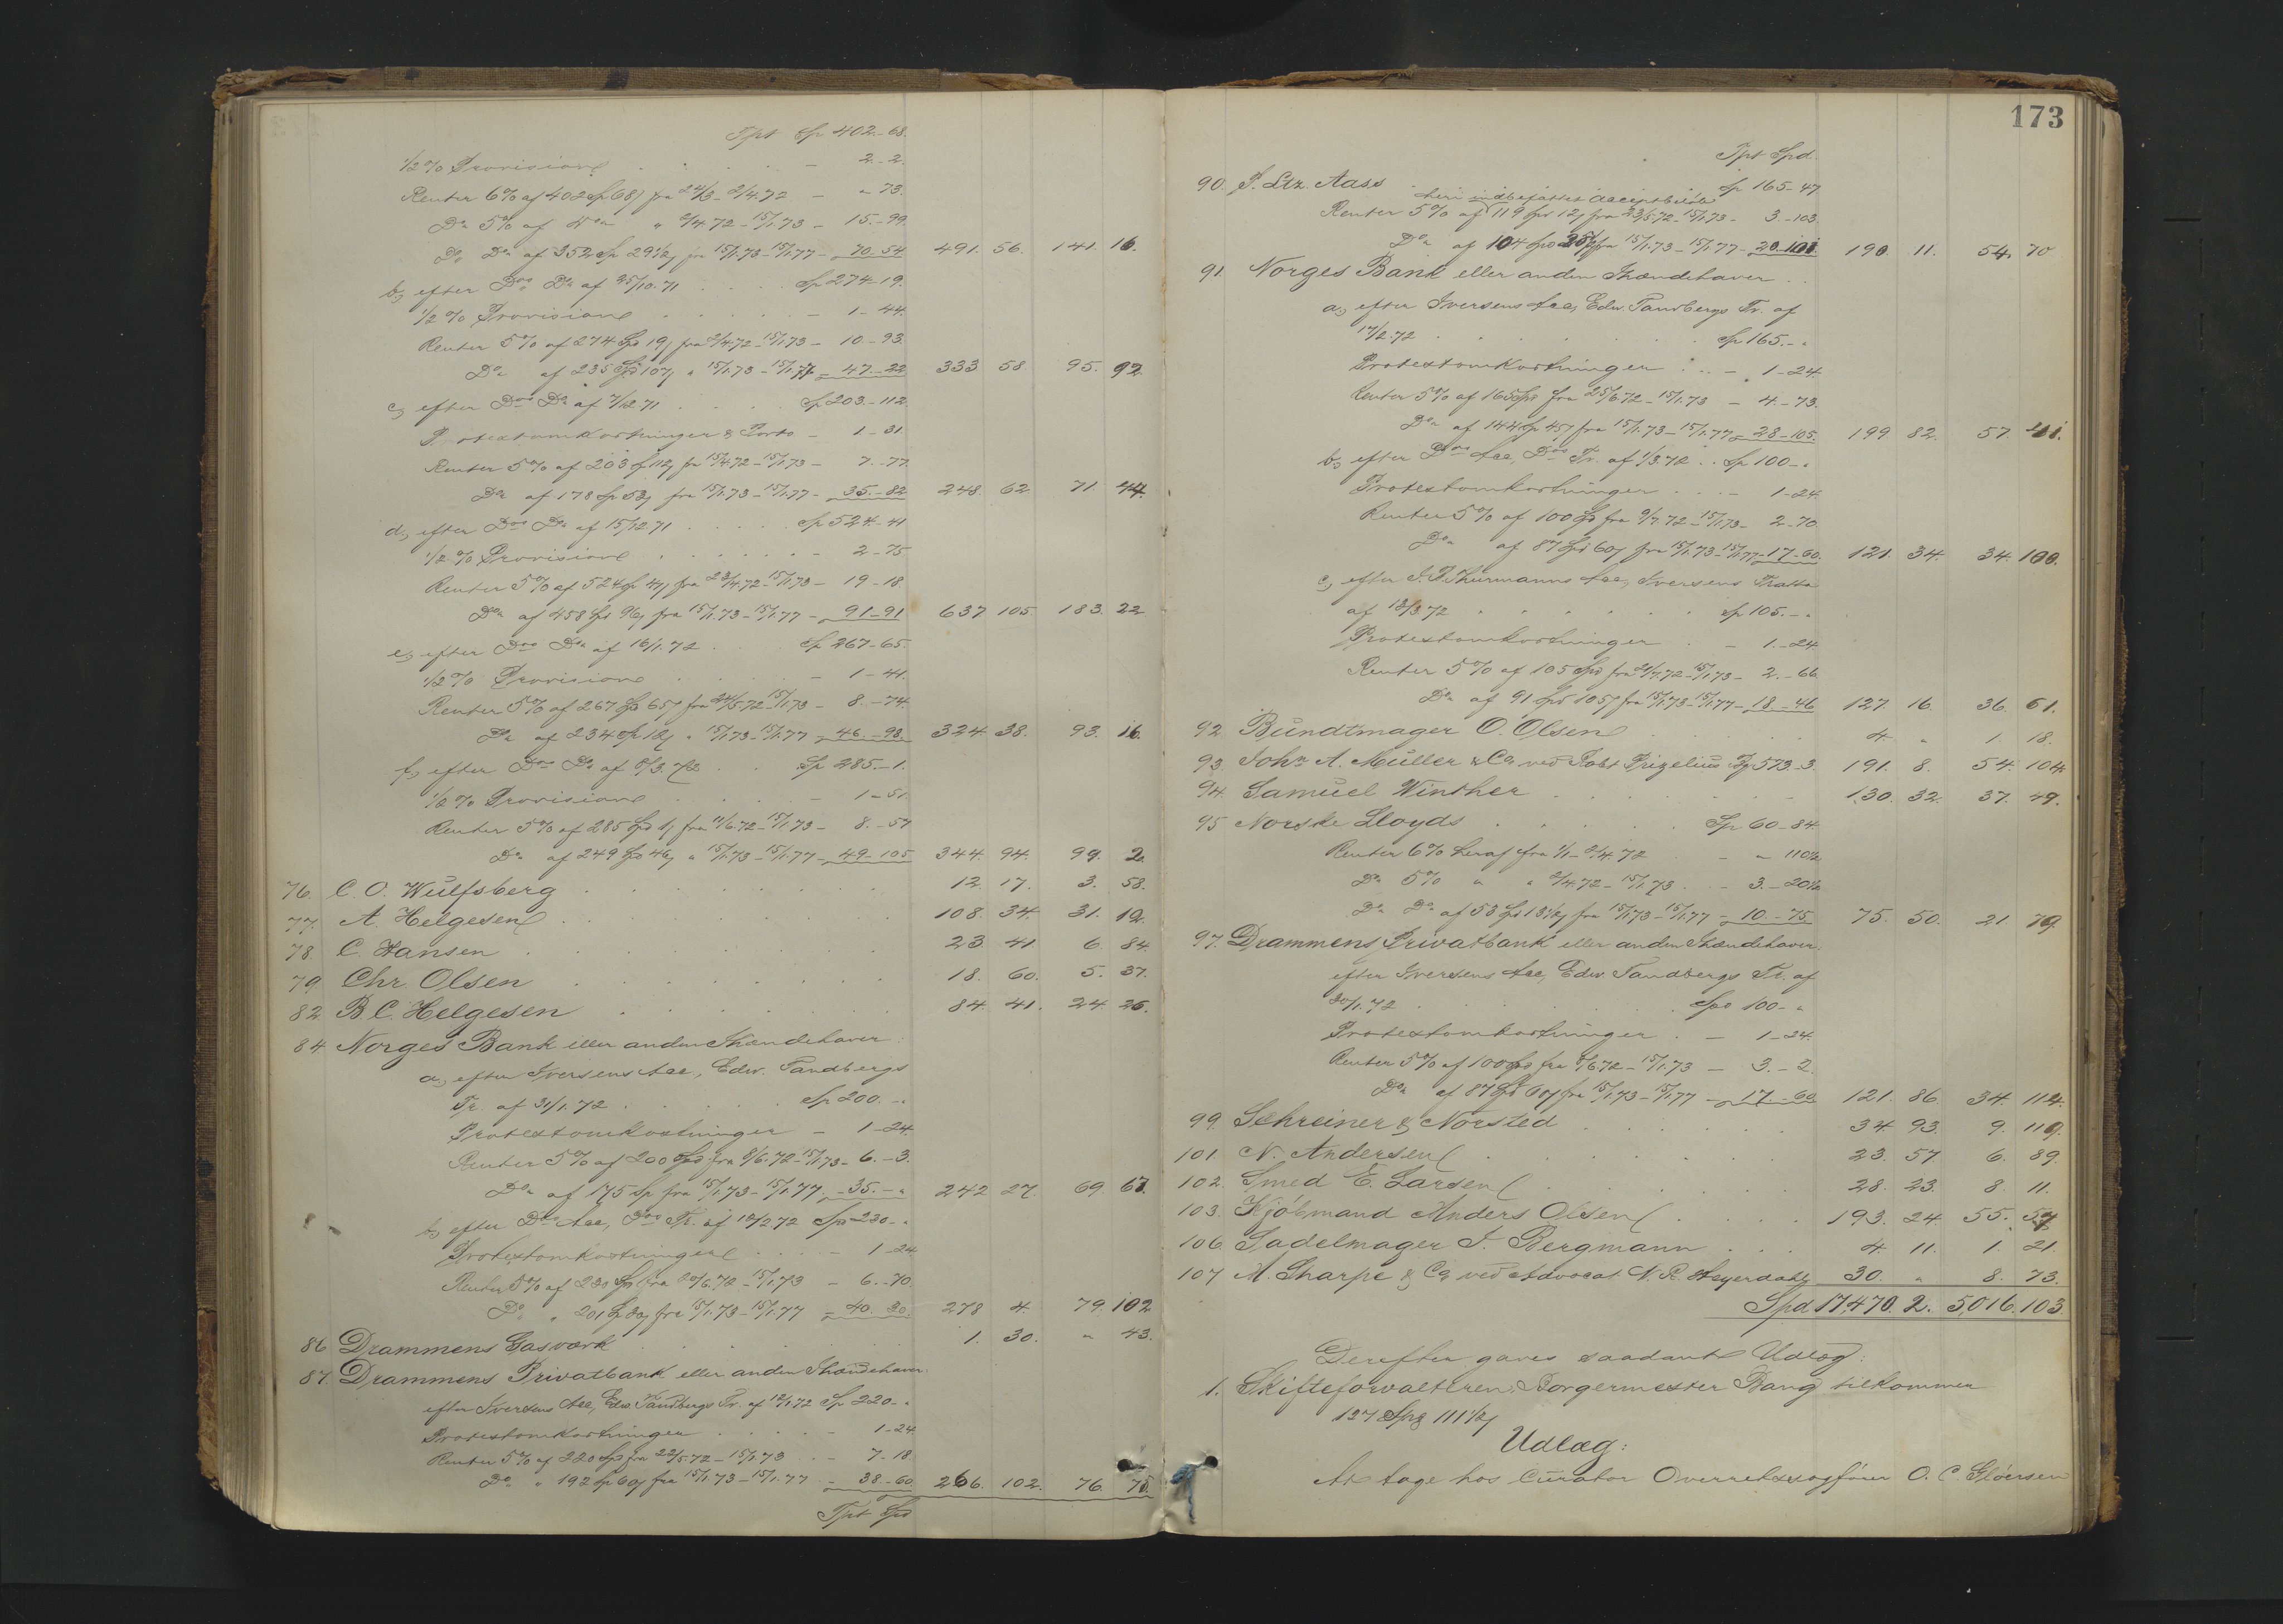 Tpt Sp 402-68.
1/2 % Provision . . . . . – 2-2.
Renter 6% af 402 Sp 68 fra 24/3-2/4.72 – " 73.
Do 5% af Do " 2/4.72-15/1.73 – 15.-99.
Do Do af 352 Sp 29 1/2 fra 15/1.73-15/1.77 – 70-54 491. 56. 141. 16.
b, efter Dos Do af 25/10.71 . . . . Sp 274-19.
1/2 % Provision . . . . . – 1-44.
Renter 5% af 274 Spd 19 fra 2/4.72-15/1.73 – 10-93.
Do af 235 Spd 107 " 15/1.73-15/1.77 – 47-22 333 58 95. 92.
c, efter Dos Do af 7/12.71 . . . . Sp 203.-112.
Protestomkostninger & Porto – 1-31
Renter 5% af 203 Sp 112 fra 15/4.72-15/1.73 – 7.-77.
Do af 178 Sp 53 fra 15/1.73-15/1.77 – 35.-82 248. 62. 71 44.
d, efter Dos Do af 15/12.71 . . . . Sp 524-41
1/2 % Provision . . . . . . – 2-75
Renter 5% af 524 Sp 41 fra 23/4.72-15/1.73 – 19-18.
Do af 458 Spd 96 fra 15/1.73-15/1.77 – 91-91 637. 105. 183. 22
e, efter Dos Do af 16/1.72 . . Sp 267-65.
1/2 % Provision . . . . – 1-41.
Renter 5% af 267 Spd 65 fra 24/5.72-15/1.73 – 8.-74
Do af 234 Sp 12 " 15/1.73-15/1.77 – 46.-98. 324 38. 93. 16.
f, efter Dos Do af 8/3.72 . . Sp 285.-1.
1/2 % Provision . . . . – 1-51.
Renter 5% af 285 Spd 1 fra 11/6.72-15/1.73 – 8.-57
Do af 249 Spd 46 " 15/1.73-15/1.77 – 49-105 344. 94. 99. 2.
76. C. O. Wulfsberg . . . . . . . 12. 17. 3. 58.
77. A. Helgesen . . . . . . . 108. 34. 31. 12.
78. C. Hansen . . . . . . . 23 41. 6. 84.
79. Chr. Olsen . . . . . . . 18. 60. 5. 37.
82 B. C. Helgesen . . . . . . . 84. 41. 24. 26.
84 Norges Bank eller anden Ihændehaver:
a, efter Iversens Acc, Edv. Tandbergs
Tr. af 31/1.72 . . . . . Sp 200.-"
Protestomkostninger – 1-24.
Renter 5% af 200 Spd fra 8/6.72-15/1.73 – 6.-3.
Do af 175 Sp fra 15/1.73-15/1.77 – 35.-" 242 27. 69. 67.
b, efter Dos Acc, Dos Tr. af 12/2.72 Spd 230-"
Protestomkostninger . . . – 1-24
Renter 5% af 230 Sp fra 20/6.72-15/1.73 – 6.-70.
Do " 201 Sp 30 fra 15/1.73-15/1.77 – 40.30. 278 4. 79. 102
86 Drammens Gasværk . . . . . . 1. 30. " 43.
87. Drammens Privatbank eller anden Ihændehaver
efter Iversens Acc, Edv. Tandbergs Tr. af 12/1.72 Sp 220-"
Protestomkostninger . . . . – 1-24
Renter 5% af 220 Spd fra 22/5.72-15/1.73 . . – 7-18.
Do " 192 Sp 60 fra 15/1.73-15/1.77 – 38.-60. 266. 102. 76. 75.
Tpt Spd
173
Tpt Spd.
90. P. Ltz. Aass . . . . . Sp 165-47
heri indbefattet Acceptbeløb
Renter 5% af 119 Spd 12 fra 23/5.72-15/1.73 – 3.-103.
Do af 104 Spd 25 fra 15/1.73-15/1.77 – 20.101. 190. 11. 54. 70
91. Norges Bank eller anden Ihændehaver . .
a, efter Iversens Acc, Edv. Tandbergs Tr. af
17/2.72 . . . . . . . Sp 165.-"
Protestomkostninger . . – 1-24.
Renter 5% af 165 Spd fra 25/6.72-15/1.73 – 4.-73.
Do af 144 Sp 45 fra 15/1.73-15/1.77 – 28-105. 199 82. 57. 41.
b, efter Dos Acc, Dos Tr. af 1/3.72 . . Sp 100-"
Protestomkostninger . . . – 1-24.
Renter 5% af 100 Spd fra 9/7.72-15/1.73 – 2-70
Do af 87 Spd 60 fra 15/1.73-15/1.77 – 17-60. 121. 34. 34. 100.
c, efter J. P. Thurmanns Acc, Iversens Tratta
af 13/3.72 . . . . . . Sp 105.-"
Protestomkostninger . . – 1.-24
Renter 5% af 105 Spd fra 21/7.72-15/1.73 – 2.-66
Do af 91 Spd 105 fra 15/1.73-15/1.77 – 18-46 127. 16. 36. 61.
92. Bundtmager O. Olsen . . . . . 4. " 1. 18.
93. Johs A. Müller & Co ved Robt Prizelius 573-3. 191. 8. 54. 104.
94. Samuel Winther . . . . . . . 130. 32. 37. 49.
95 Norske Lloyds . . . . . Sp 60-84
Renter 6% heraf fra 1/1-2/4.72 . . – " 110 1/2
Do 5% " " 2/4.72-15/1.73 . . – 3.-20 1/2
Do Do af 53 Spd 13 1/2 fra 15/1.73-15/1.77 – 10.-75 75. 50. 21. 79.
97. Drammens Privatbank eller anden Ihændehaver.
efter Iversens Acc, Edv. Tandbergs Tr. af
30/1.72 . . . . . . Spd 100-"
Protestomkostninger . – 1-24.
Renter 5% af 100 Spd fra 6.72-15/1.73 – 3.-2.
Do af 87 Spd 60 fra 15/1.73-15/1.77 – 17.-60 121. 86. 34. 114.
99. Schreiner & Norsted . . . . . . 34 93. 9. 119.
101 N. Andersen . . . . . . . 23. 57. 6. 89.
102. Smed E. Larsen . . . . . . 28. 23. 8. 11.
103. Kjøbmand Anders Olsen . . . . 193. 24. 55. 57
106. Sadelmager J. Bergmann . . . 4. 11. 1. 21.
107 M. Sharpe & Co ved Advocat N. R. Heyerdahl 30. " 8. 73.
Spd 17,470. 2. 5,016. 103
Derefter gaves saadant Udlæg:
1. Skifteforvalteren, Borgermester Bang tilkommer
127 Spd 111 1/2
Udlæg:
At tage hos Curator Overretssagfører O. C. Gløersen